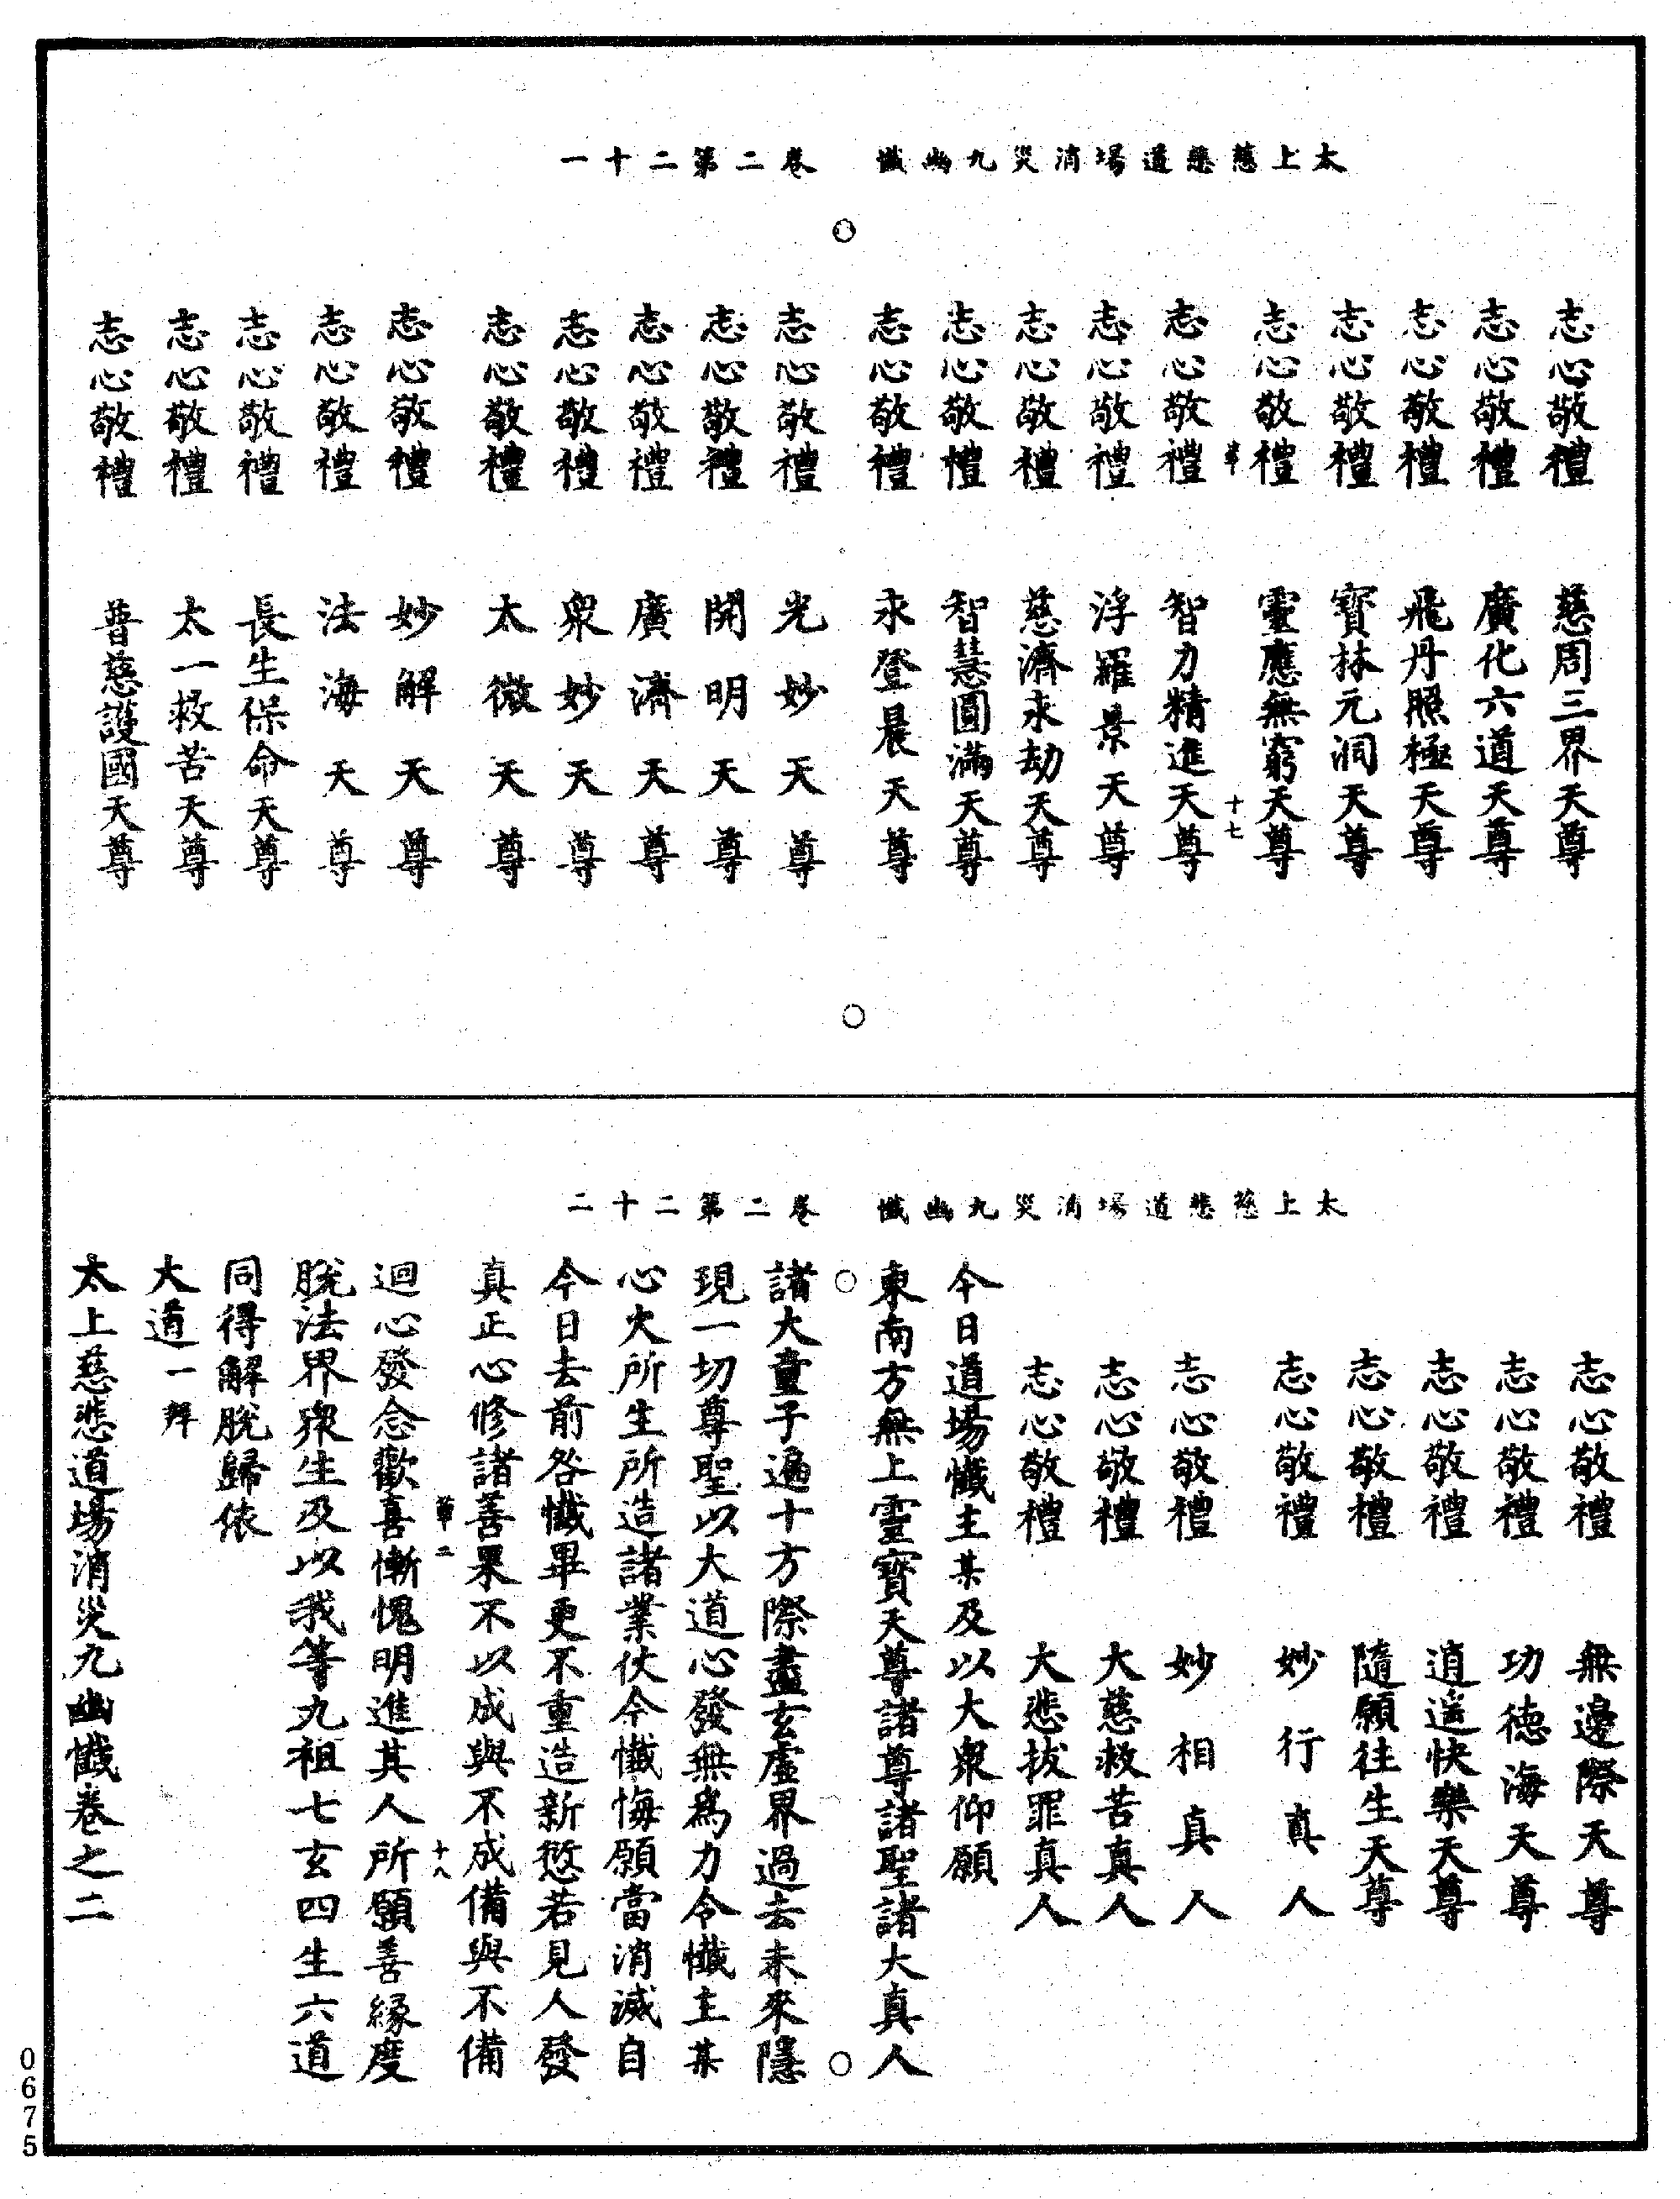 太上慈悲道場消災九幽懺　卷二第二十一
志心敬禮　慈周三界天尊
志心敬禮　廣化六道天尊
志心敬禮　飛丹照極天尊
志心敬禮　寳林元洞天尊
志心敬禮　靈應無窮天尊
十七
志心敬禮　智力精進天尊
志心敬禮　浮羅景天尊
志心敬禮　慈濟永劫天尊
志心敬禮　智慧圓滿天尊
志心敬禮　永登晨天尊
志心敬禮　光妙天尊
志心敬禮　開明天尊
志心敬禮　廣濟天尊
志心敬禮　衆妙天尊
志心敬禮　太微天尊
志心敬禮　妙解天尊
志心敬禮　法海天尊
志心敬禮　長生保命天尊
志心敬禮　太一救苦天尊
志心敬禮　普慈護國天尊
太上慈悲道場消災九幽懺　卷二第二十二
志心敬禮　無邊際天尊
志心敬禮　功德海天尊
志心敬禮　逍遥快樂天尊
志心敬禮　隨願往生天尊
志心敬禮　妙行真人
志心敬禮　妙相真人
志心敬禮　大慈救苦真人
志心敬禮　大悲拔罪真人
今日道場懺主某及以大衆仰願
東南方無上靈寳天尊諸尊諸聖諸大真人
諸大童子遍十方際盡玄虛界過去未來隱
現一切尊聖以大道心發無爲力令懺主某
心火所生所造諸業仗今懺悔願當消滅自
今日去前咎懺畢更不重造新愆若見人發
真正心修諸善果不以成與不成備與不備
草二　十八
迴心發念歡喜慚愧明進其人所願善緣度
脫法界衆生及以我等九祖七玄四生六道
同得解脫歸依
大道一拜
太上慈悲道場消災九幽懺卷之二
0675